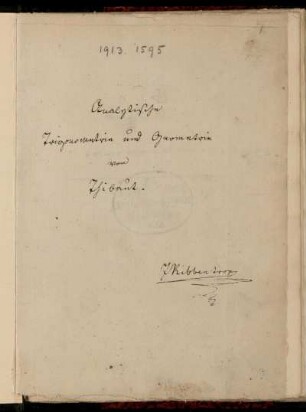 1913 1595
Analytische
Trigonometrie und Geometrie
von
Thibaut.
Ribbentrop